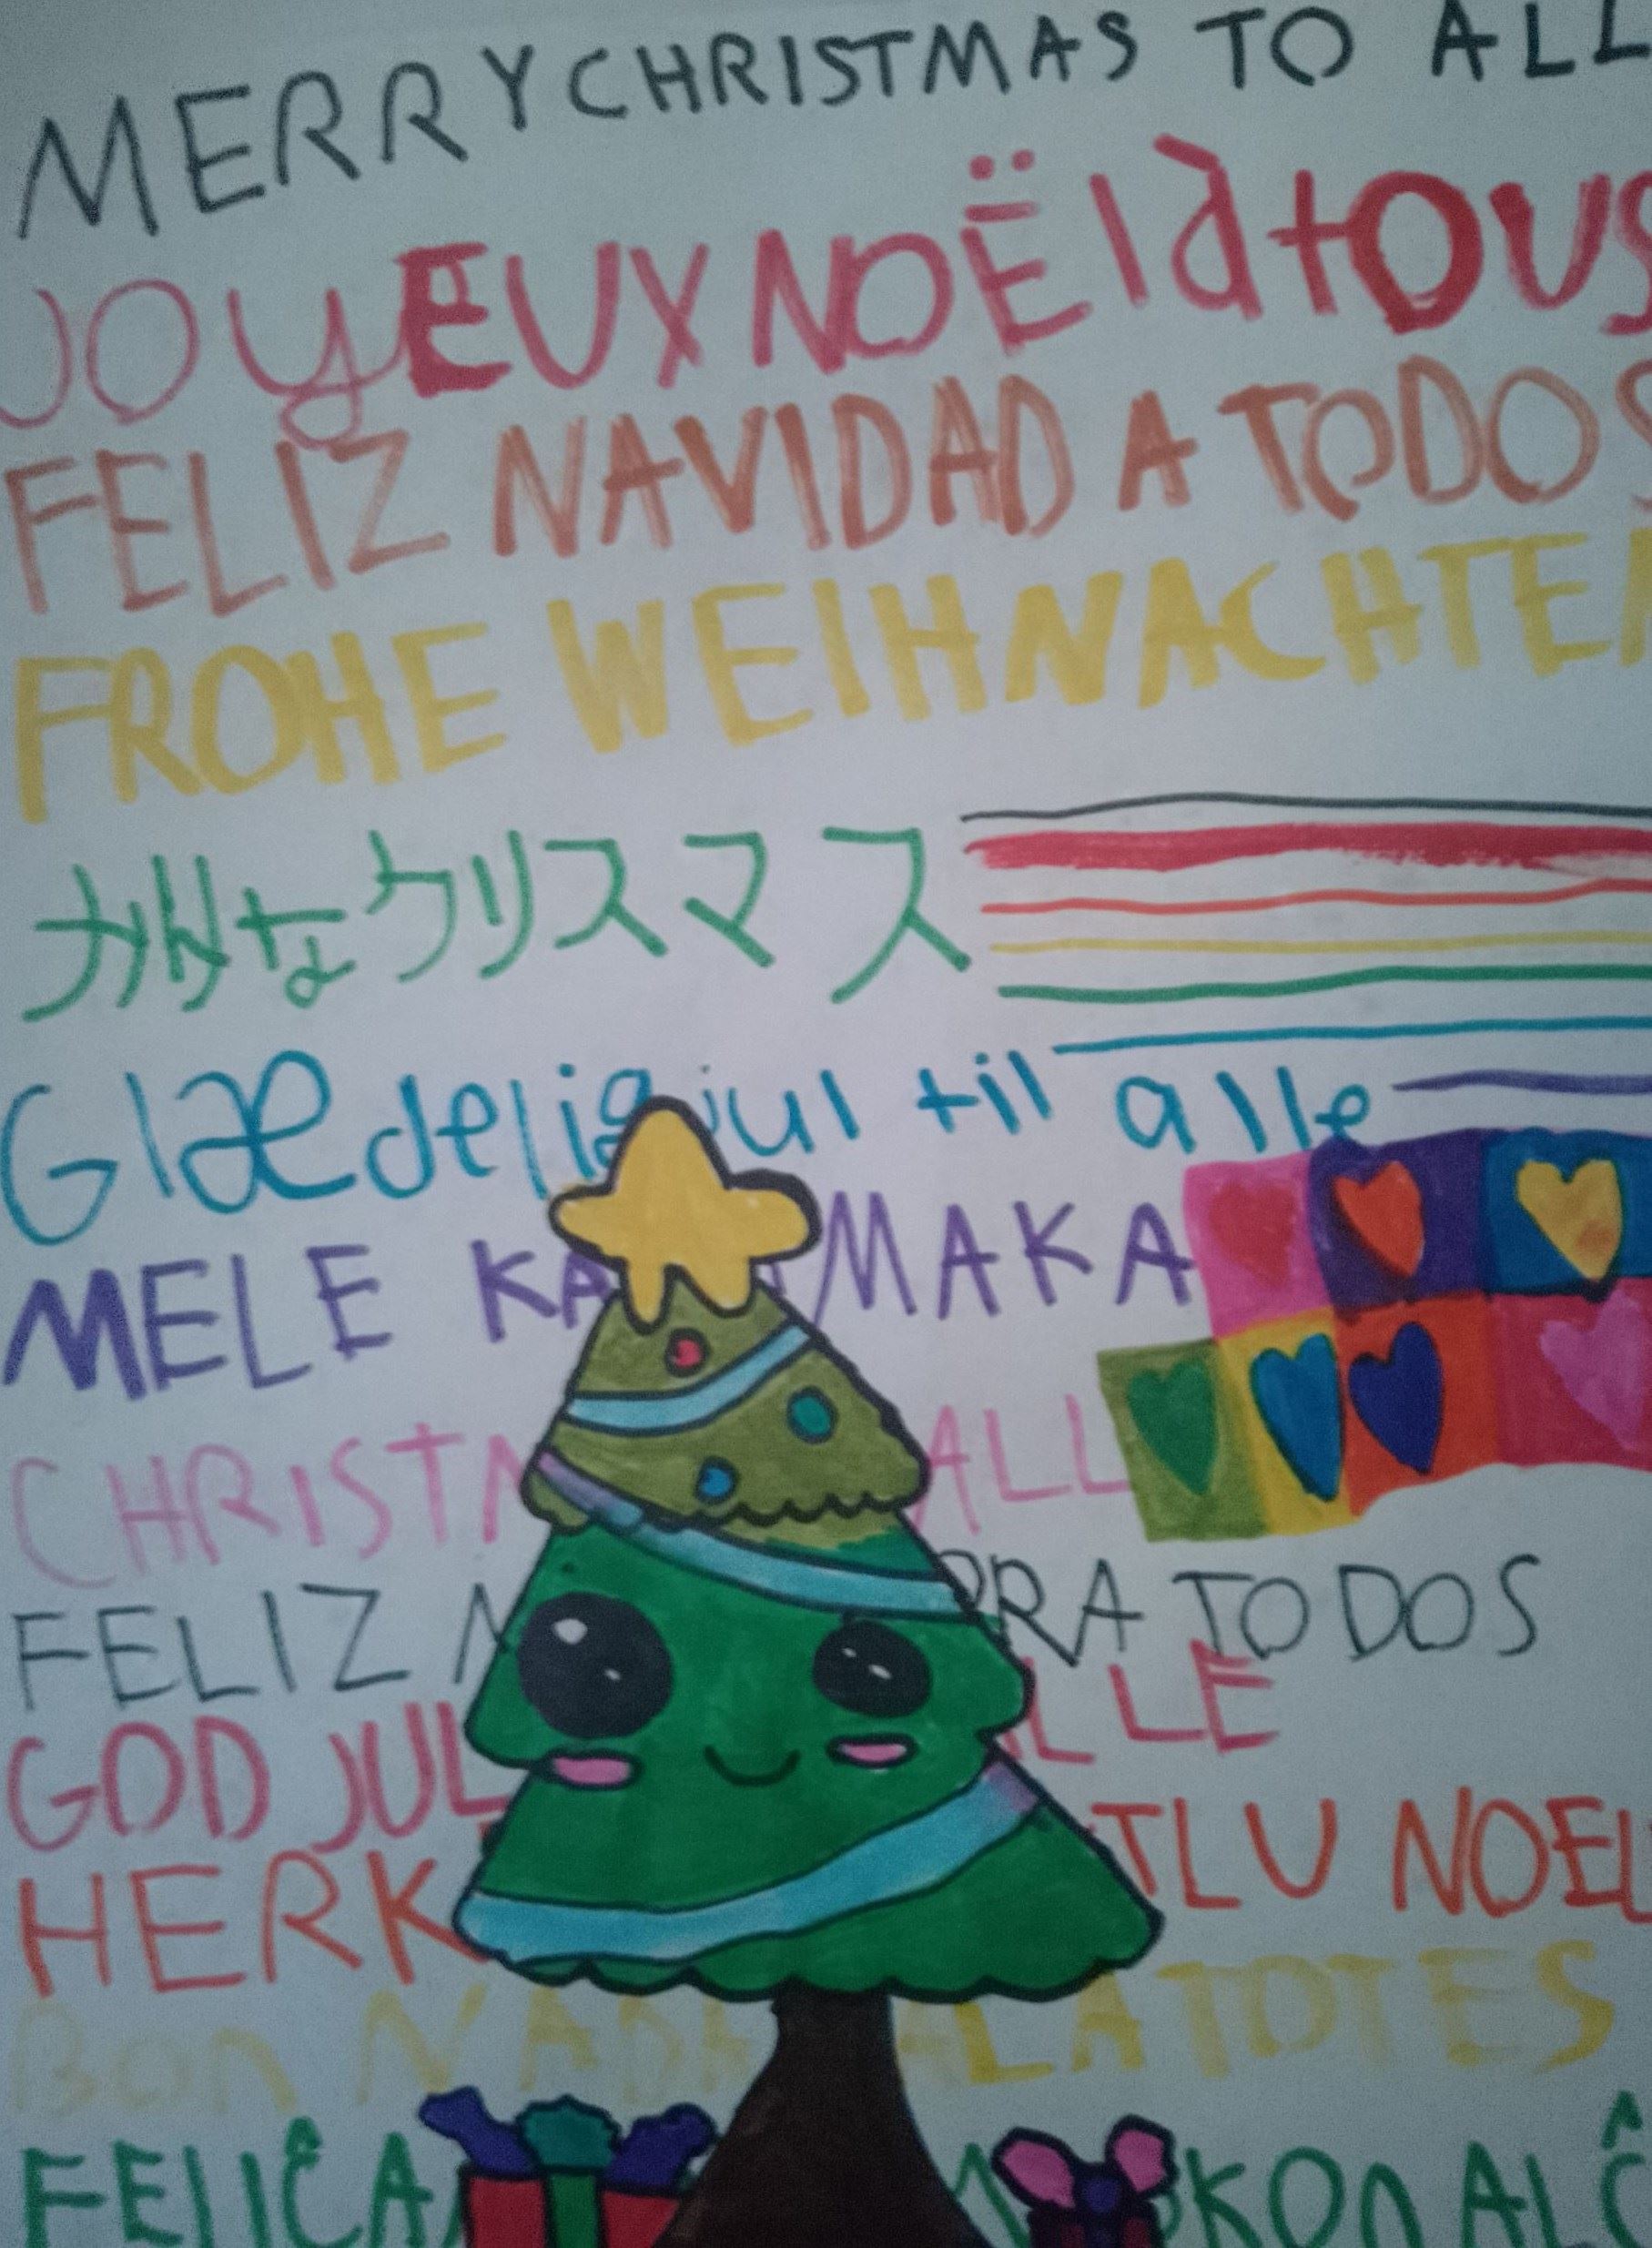 MERRY CHRISTMAS TO ALL
JOYEUX NOËl à tOUS
FELIZ NAVIDAD A TODOS
FROHE WEIHNACHTEN
みんなクリスマス
Glædelig jul til alle
MELE KA MAKA
CHRISTM ALL
FELIZ N PRA TODOS
GOD JUL ALLE
HERK TLU NOEL
Bon NADAL A TOTES
FELIĈA KON AL Ĉ